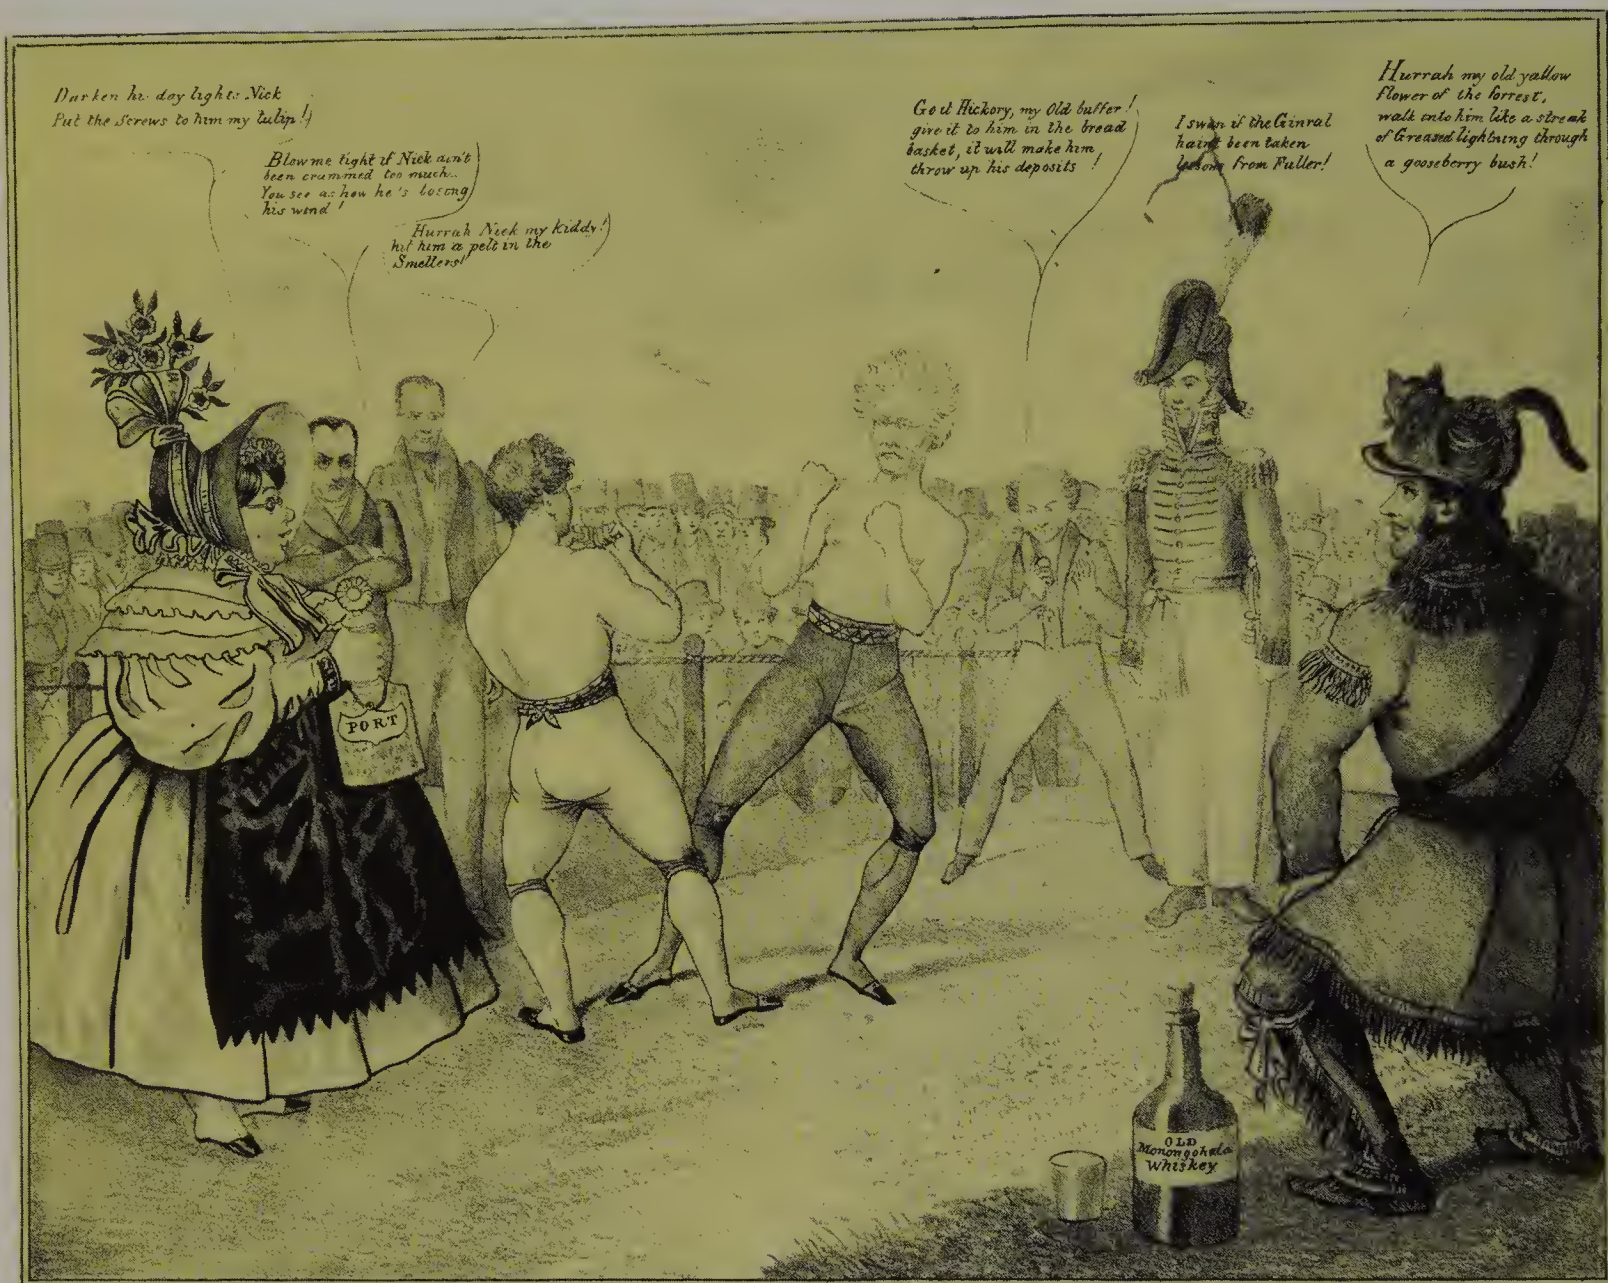 Darken his day lights Nick
Put the Screws to him my tulip!
Blow me tight if Nick ain't
been crammed too much.
You see as how he's losing
his wind!
Hurrah Nick my kiddy!
hit him a pelt in the
Smellers!
Go it Hickory, my Old buffer!
give it to him in the bread
basket, it will make him
throw up his deposits !
I swan if the Ginral
haint been taken
from Fuller!
Hurrah my old yallow
flower of the forrest,
walk into him like a streak
of Greased lightning through
a gooseberry bush!
PORT
OLD
Monongohala
Whiskey